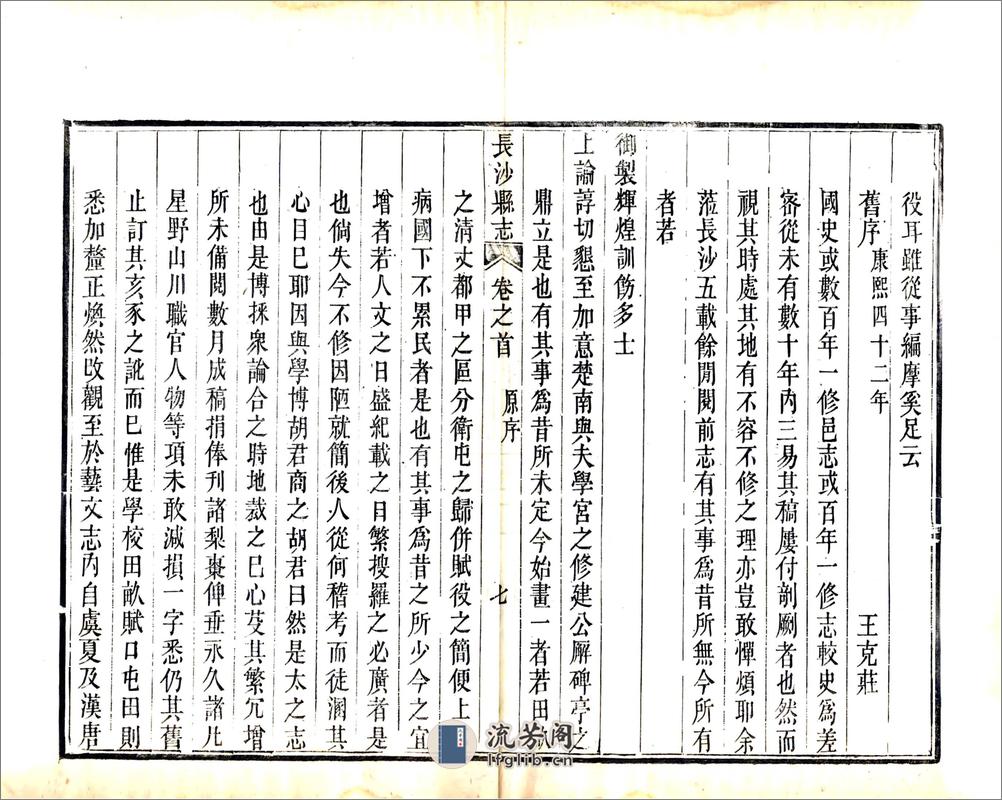 役耳雖從事編摩奚足云
舊序 康熙四十二年 王克莊
國史或數百年一修邑志或百年一修志較史爲差
宻從未有數十年內三易其稿屢付剞劂者也然而
視其時處其地有不容不修之理亦豈敢憚煩耶余
蒞長沙五載餘閒閱前志有其事爲昔所無今所有
者若
御製輝煌訓飭多士
上諭諄切懇至加意楚南與夫學宮之修建公廨碑亭之
鼎立是也有其事爲昔所未定今始畫一者若田
長沙縣志 卷之首 原序 七
之清丈都甲之區分衛屯之歸併賦役之簡便上
病國下不累民者是也有其事爲昔之所少今之宜
增者若人文之日盛紀載之日繁搜羅之必廣者是
也倘失今不修因陋就簡後人從何稽考而徒溷其
心目已耶因與學博胡君商之胡君曰然是太之志
也由是博採衆論合之時地裁之已心芟其繁冗增
所未備閱數月成稿捐俸刋諸梨棗俾垂永久諸凡
星野山川職官人物等項未敢減損一字悉仍其舊
止訂其亥豕之訛而已惟是學校田畝賦口屯田則
悉加釐正煥然改觀至於藝文志內自虞夏及漢唐
流芳阁
lfglib.cn